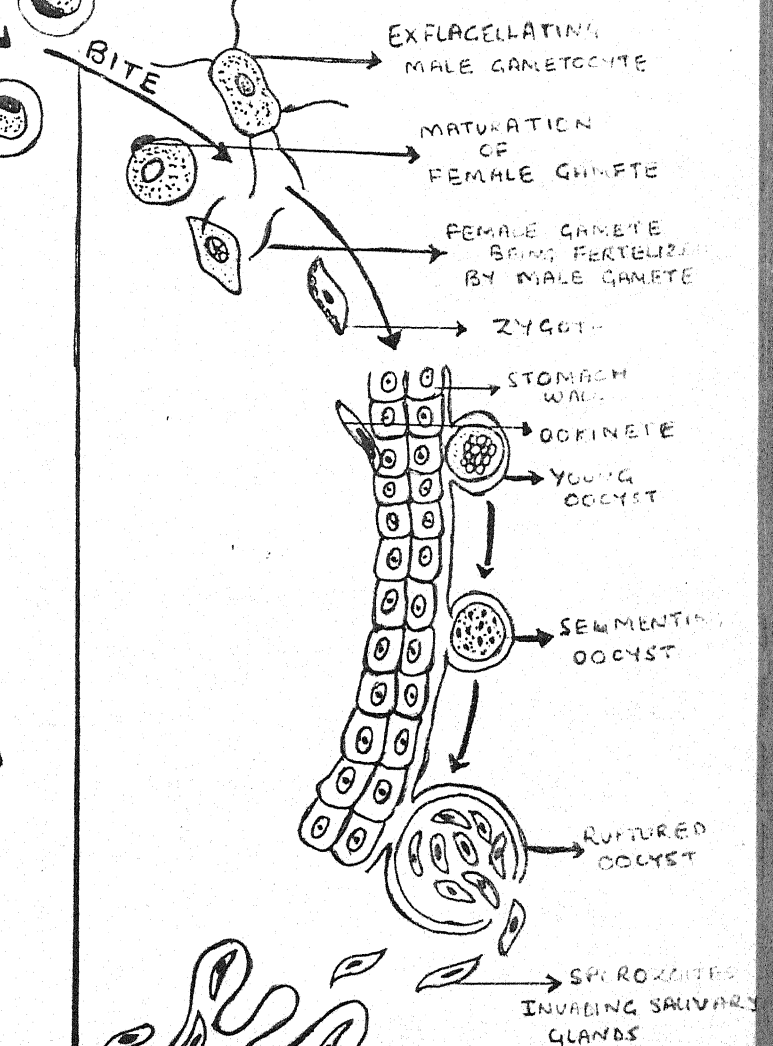 BITE
EXFLAGELLATING
MALE GAMETOCYTE
MATURATION
OF
FEMALE GAMETE
FEMALE GAMETE
BEING FERTELIZED
BY MALE GAMETE
ZYGOTE
STOMACH
WALL
OOKINETE
YOUNG
OOCYST
SEGMENTING
OOCYST
RUPTURED
OOCYST
SPOROZOITES
INVADING SALIVARY
GLANDS